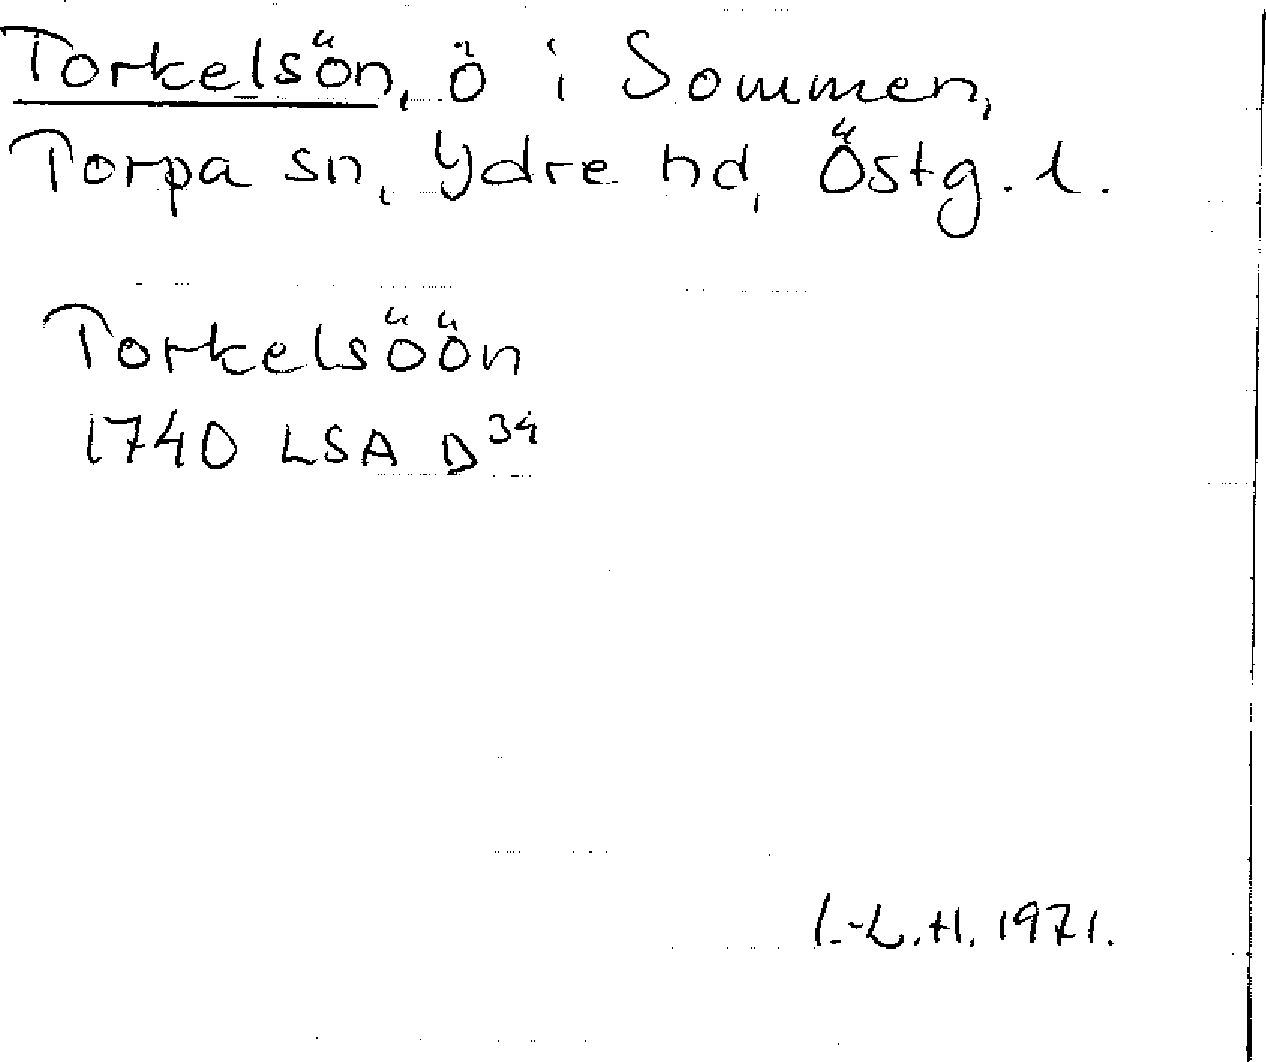 Torkelsön, ö i Sommen,
Torpa sn, Ydre hd, Östg. l.
Torkelsöön
1740 LSA D34
I.-L.H. 1971.